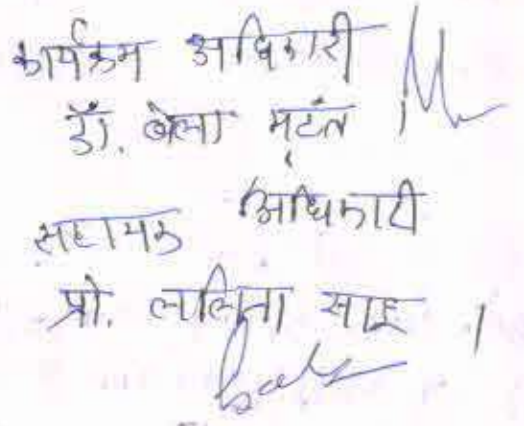 कार्यक्रम अधिकारी
डॉ. बेला महंत ।
सहायक अधिकारी
प्रो. ललिता साहू ।